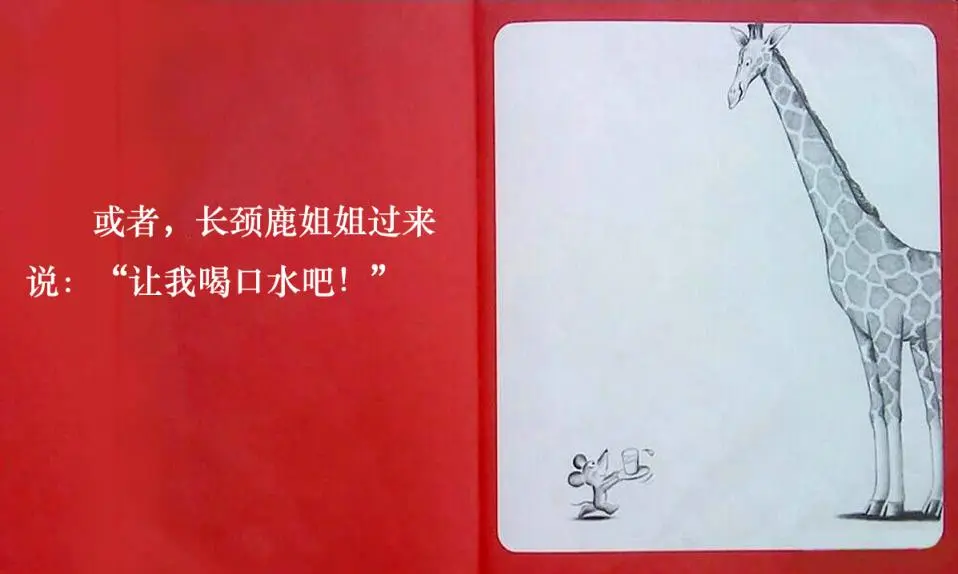 或者，长颈鹿姐姐过来
说：“让我喝口水吧！”